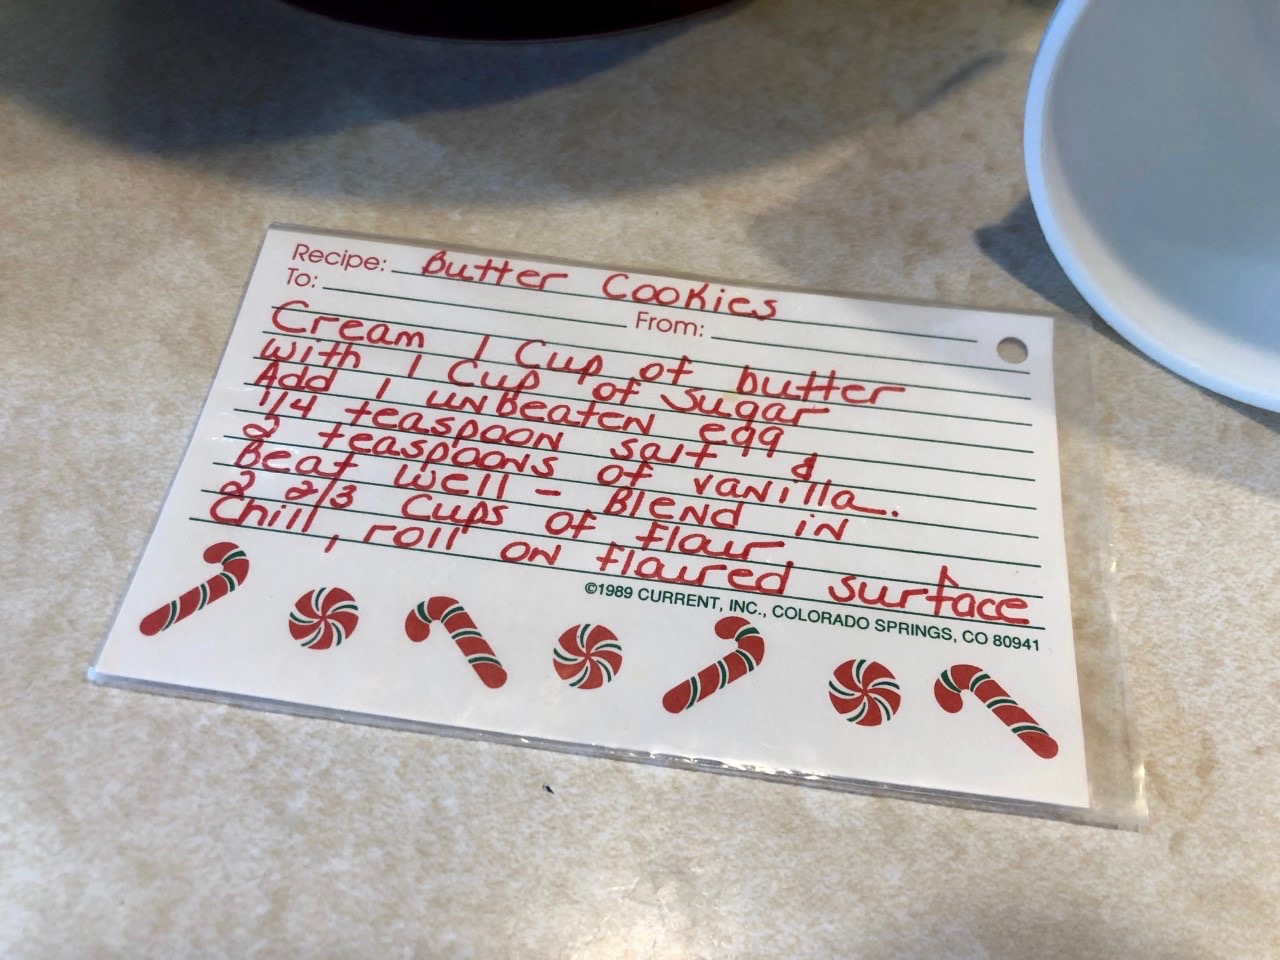 Recipe: Butter Cookies
To:
From:
Cream 1 Cup of butter
with 1 Cup of sugar
Add 1 unbeaten egg
1/4 teaspoon salt &
2 teaspoons of vanilla.
Beat well - Blend in
2 2/3 Cups of flour.
Chill, roll on floured surface
©1989 CURRENT, INC., COLORADO SPRINGS, CO 80941